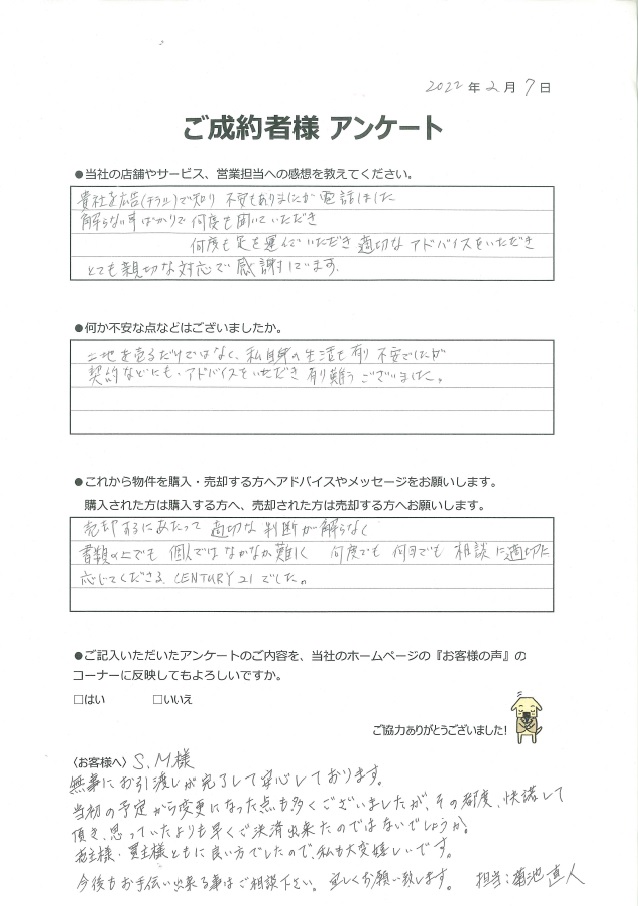 2022年2月7日
ご成約者様 アンケート
●当社の店舗やサービス、営業担当への感想を教えてください。
貴社を広告(チラシ)で知り 不安もありましたが 電話しました
解らない事ばかりで 何度も聞いていただき
何度も足を運んでいただき 適切な アドバイスをいただき
とても親切な対応で 感謝しています.
●何か不安な点などはございましたか。
土地を売るだけではなく、私自身の生活も有り 不安でしたが
契約などにも・アドバイスをいただき 有り難うございました。
●これから物件を購入・売却する方へアドバイスやメッセージをお願いします。
購入された方は購入する方へ、売却された方は売却する方へお願いします。
売却するにあたって 適切な 判断が解らなく
書類の上でも 個人では なかなか難しく 何度でも 何回でも 相談に適切に
応じてくださる CENTURY 21 でした。
●ご記入いただいたアンケートのご内容を、当社のホームページの『お客様の声』の
コーナーに反映してもよろしいですか。
□はい □いいえ
ご協力ありがとうございました!
〈お客様へ〉 S.M様
無事にお引渡しが完了して安心しております。
当初の予定から変更になった点も多くございましたが、その都度、快諾して
頂き、思っていたよりも早くご決済出来たのではないでしょうか。
売主様・買主様ともに良い方でしたので、私も大変嬉しいです。
今後もお手伝い出来る事はご相談下さい。宜しくお願い致します。 担当:菊池直人